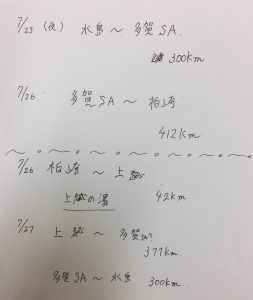 7/25 (夜) 水島 〜 多賀SA.
300km
7/26. 多賀SA 〜 柏崎
412km
7/26 柏崎 〜 上越
上越の湯 42km
7/27 上越 〜 多賀SA?
377km.
多賀SA 〜 水島 300km.